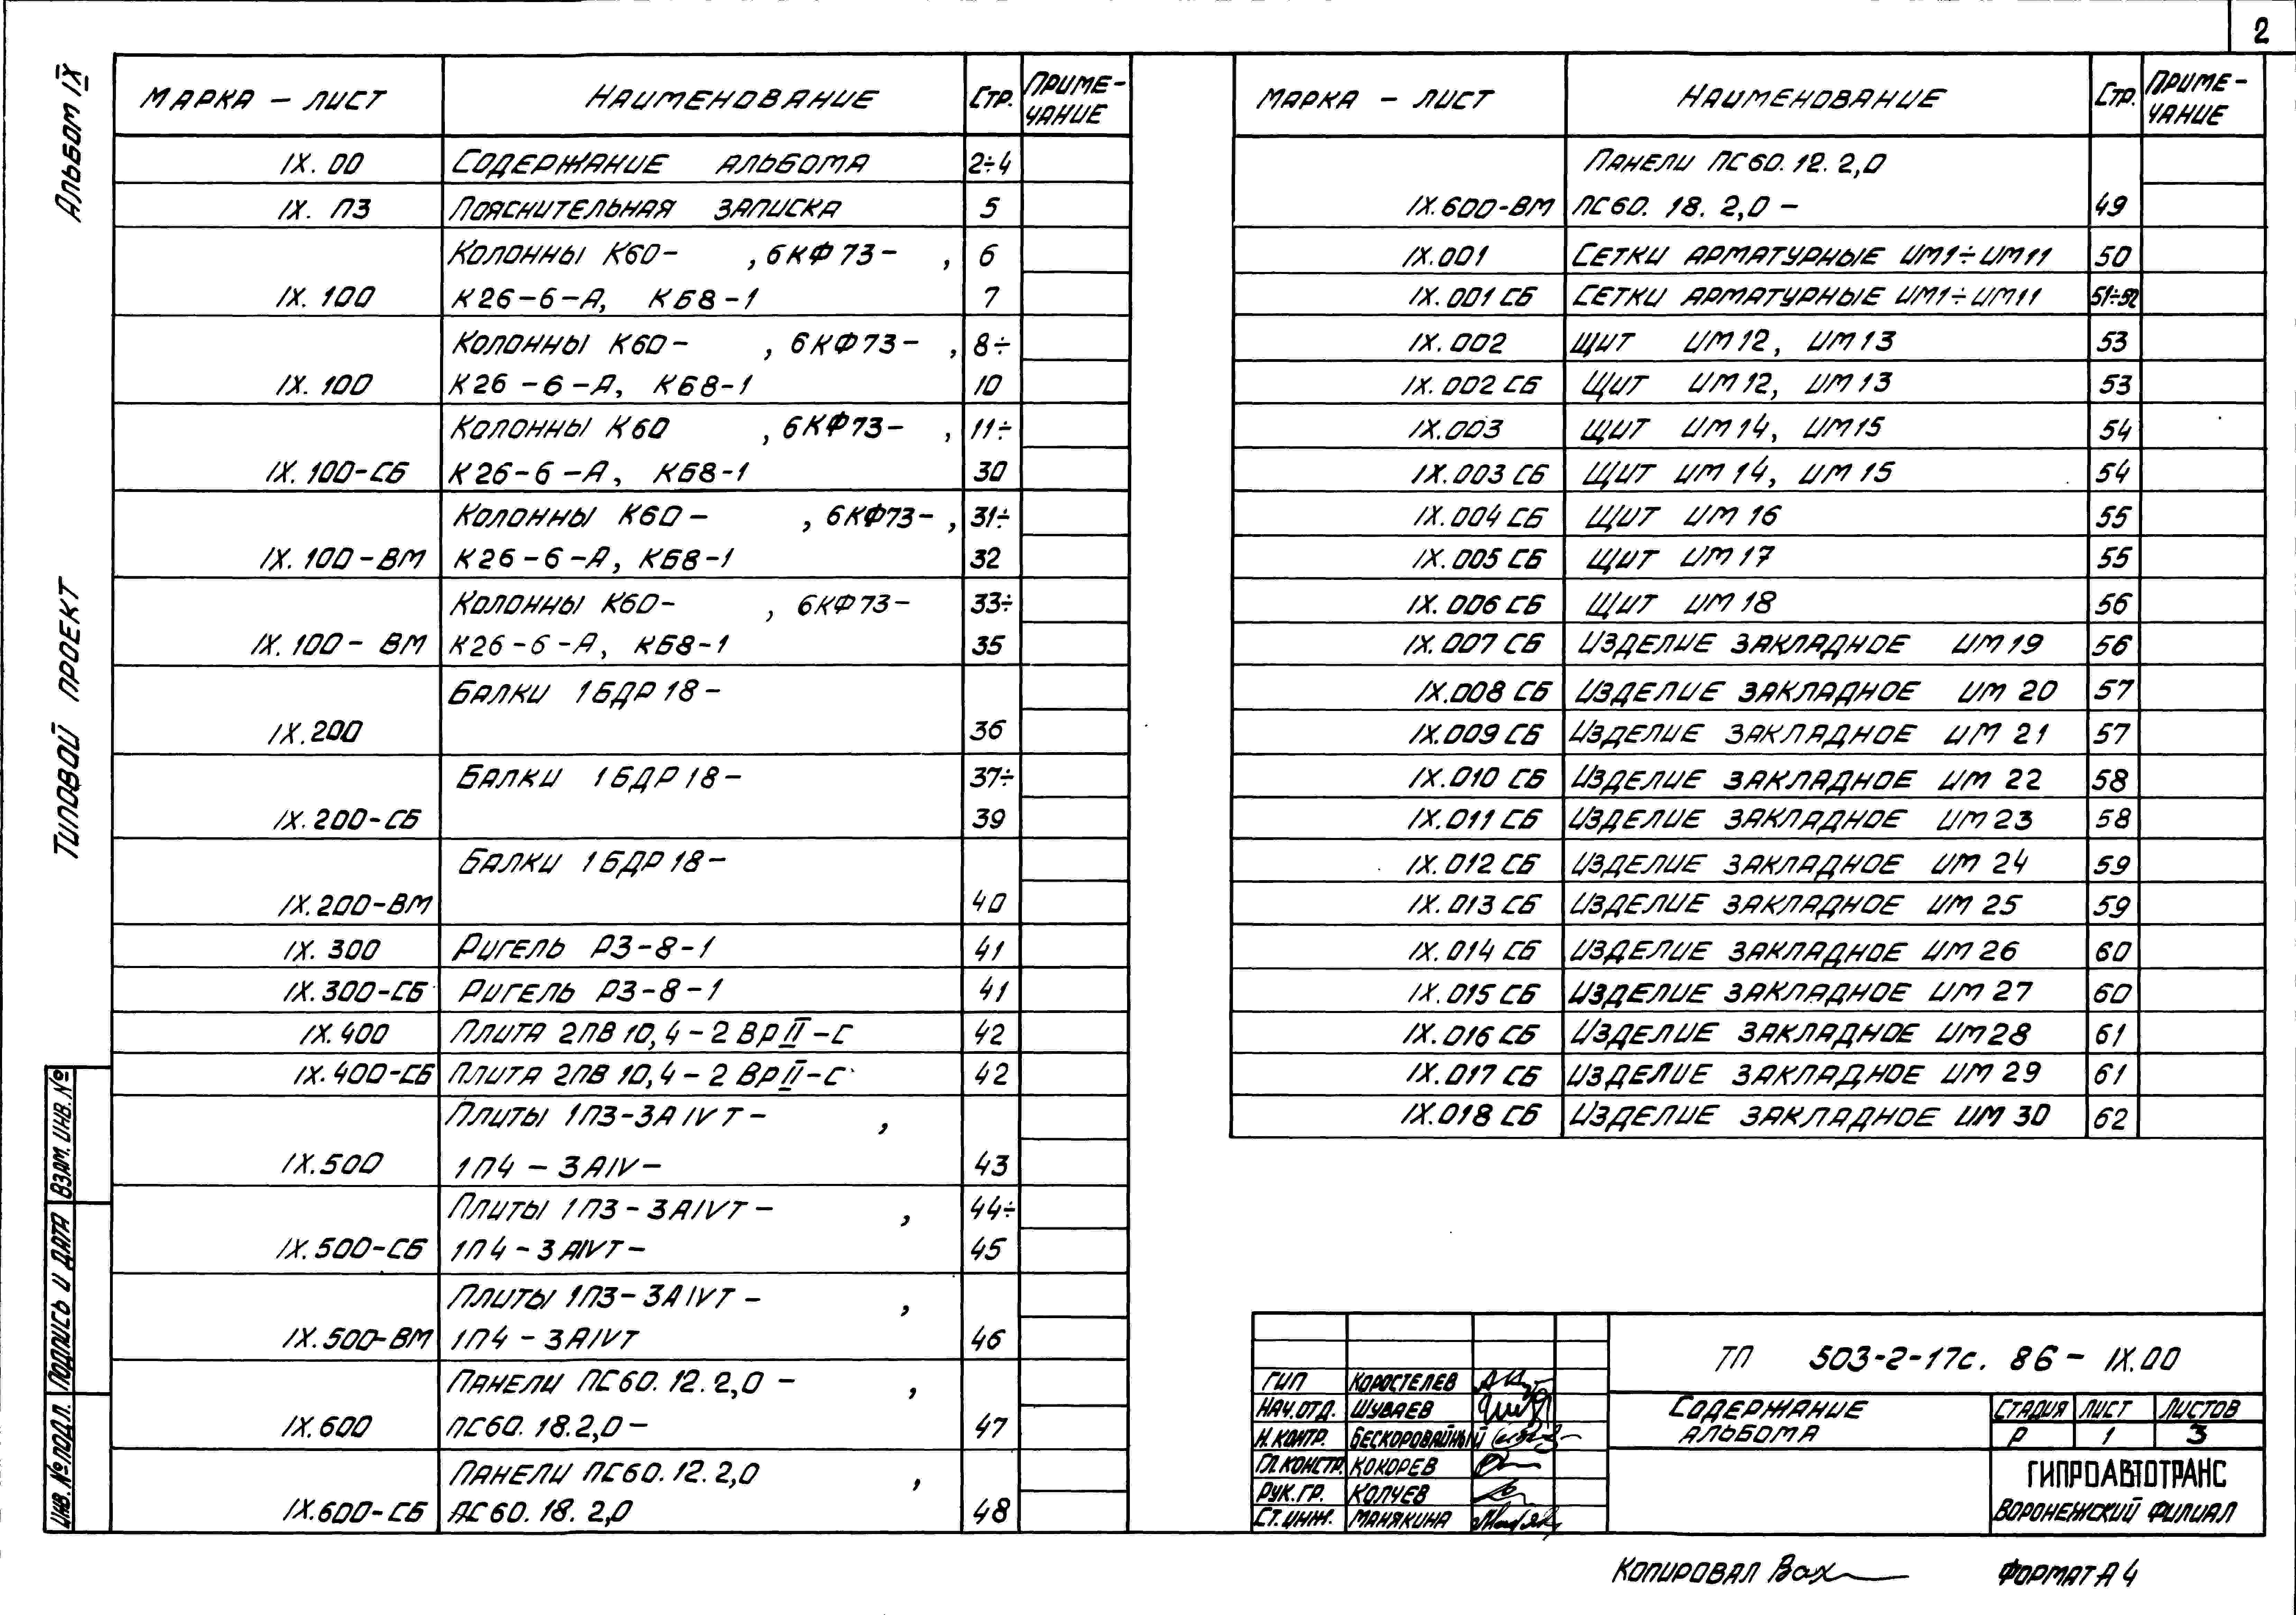 2
Альбом IX
Типовой проект
Взам. инв. №
Подпись и дата
Инв. № подл.
Марка – лист Наименование Стр. Приме-
чание
IX. 00 Содержание альбома 2÷4
IX. ПЗ Пояснительная записка 5
Колонны К60- , 6КФ73- , 6
IX. 100 К26-6-А, КБ8-1 7
Колонны К60- , 6КФ73- , 8÷
IX. 100 К26-6-А, КБ8-1 10
Колонны К60 , 6КФ73- , 11÷
IX. 100-СБ К26-6-А, КБ8-1 30
Колонны К60- , 6КФ73- , 31÷
IX. 100-ВМ К26-6-А, КБ8-1 32
Колонны К60- , 6КФ73- 33÷
IX. 100-ВМ К26-6-А, КБ8-1 35
Балки 1БДР18-
IX.200 36
Балки 1БДР18- 37÷
IX.200-СБ 39
Балки 1БДР18-
IX.200-ВМ 40
IX. 300 Ригель Р3-8-1 41
IX.300-СБ Ригель Р3-8-1 41
IX.400 Плита 2ПВ10,4-2 ВрII-С 42
IX.400-СБ Плита 2ПВ10,4-2 ВрII-С 42
Плиты 1П3-3АIVТ- ,
IX.500 1П4-3АIV- 43
Плиты 1П3-3АIVТ- , 44÷
IX.500-СБ 1П4-3АIVТ- 45
Плиты 1П3-3АIVТ- ,
IX.500-ВМ 1П4-3АIVТ 46
Панели ПС60.12.2,0- ,
IX.600 ПС60.18.2,0- 47
Панели ПС60.12.2,0 ,
IX.600-СБ ПС60.18.2,0 48
Марка – лист Наименование Стр. Приме-
чание
Панели ПС60.12.2,0
IX.600-ВМ ПС60.18.2,0- 49
IX.001 Сетки арматурные ИМ1÷ИМ11 50
IX.001 СБ Сетки арматурные ИМ1÷ИМ11 51÷52
IX.002 Щит ИМ12, ИМ13 53
IX.002 СБ Щит ИМ12, ИМ13 53
IX.003 Щит ИМ14, ИМ15 54
IX.003 СБ Щит ИМ14, ИМ15 54
IX.004 СБ Щит ИМ16 55
IX.005 СБ Щит ИМ17 55
IX.006 СБ Щит ИМ18 56
IX.007 СБ Изделие закладное ИМ19 56
IX.008 СБ Изделие закладное ИМ20 57
IX.009 СБ Изделие закладное ИМ21 57
IX.010 СБ Изделие закладное ИМ22 58
IX.011 СБ Изделие закладное ИМ23 58
IX.012 СБ Изделие закладное ИМ24 59
IX.013 СБ Изделие закладное ИМ25 59
IX.014 СБ Изделие закладное ИМ26 60
IX.015 СБ Изделие закладное ИМ27 60
IX.016 СБ Изделие закладное ИМ28 61
IX.017 СБ Изделие закладное ИМ29 61
IX.018 СБ Изделие закладное ИМ30 62
ТП 503-2-17с. 86 – IX.00
ГИП Коростелев
Нач.отд. Шуваев
Н.контр. Бескоровайный
Гл.констр. Кокорев
Рук.гр. Колчев
Ст.инж. Манякина
Содержание
альбома
Стадия Лист Листов
Р 1 3
ГИПРОАВТОТРАНС
Воронежский филиал
Копировал Вах
Формат А4